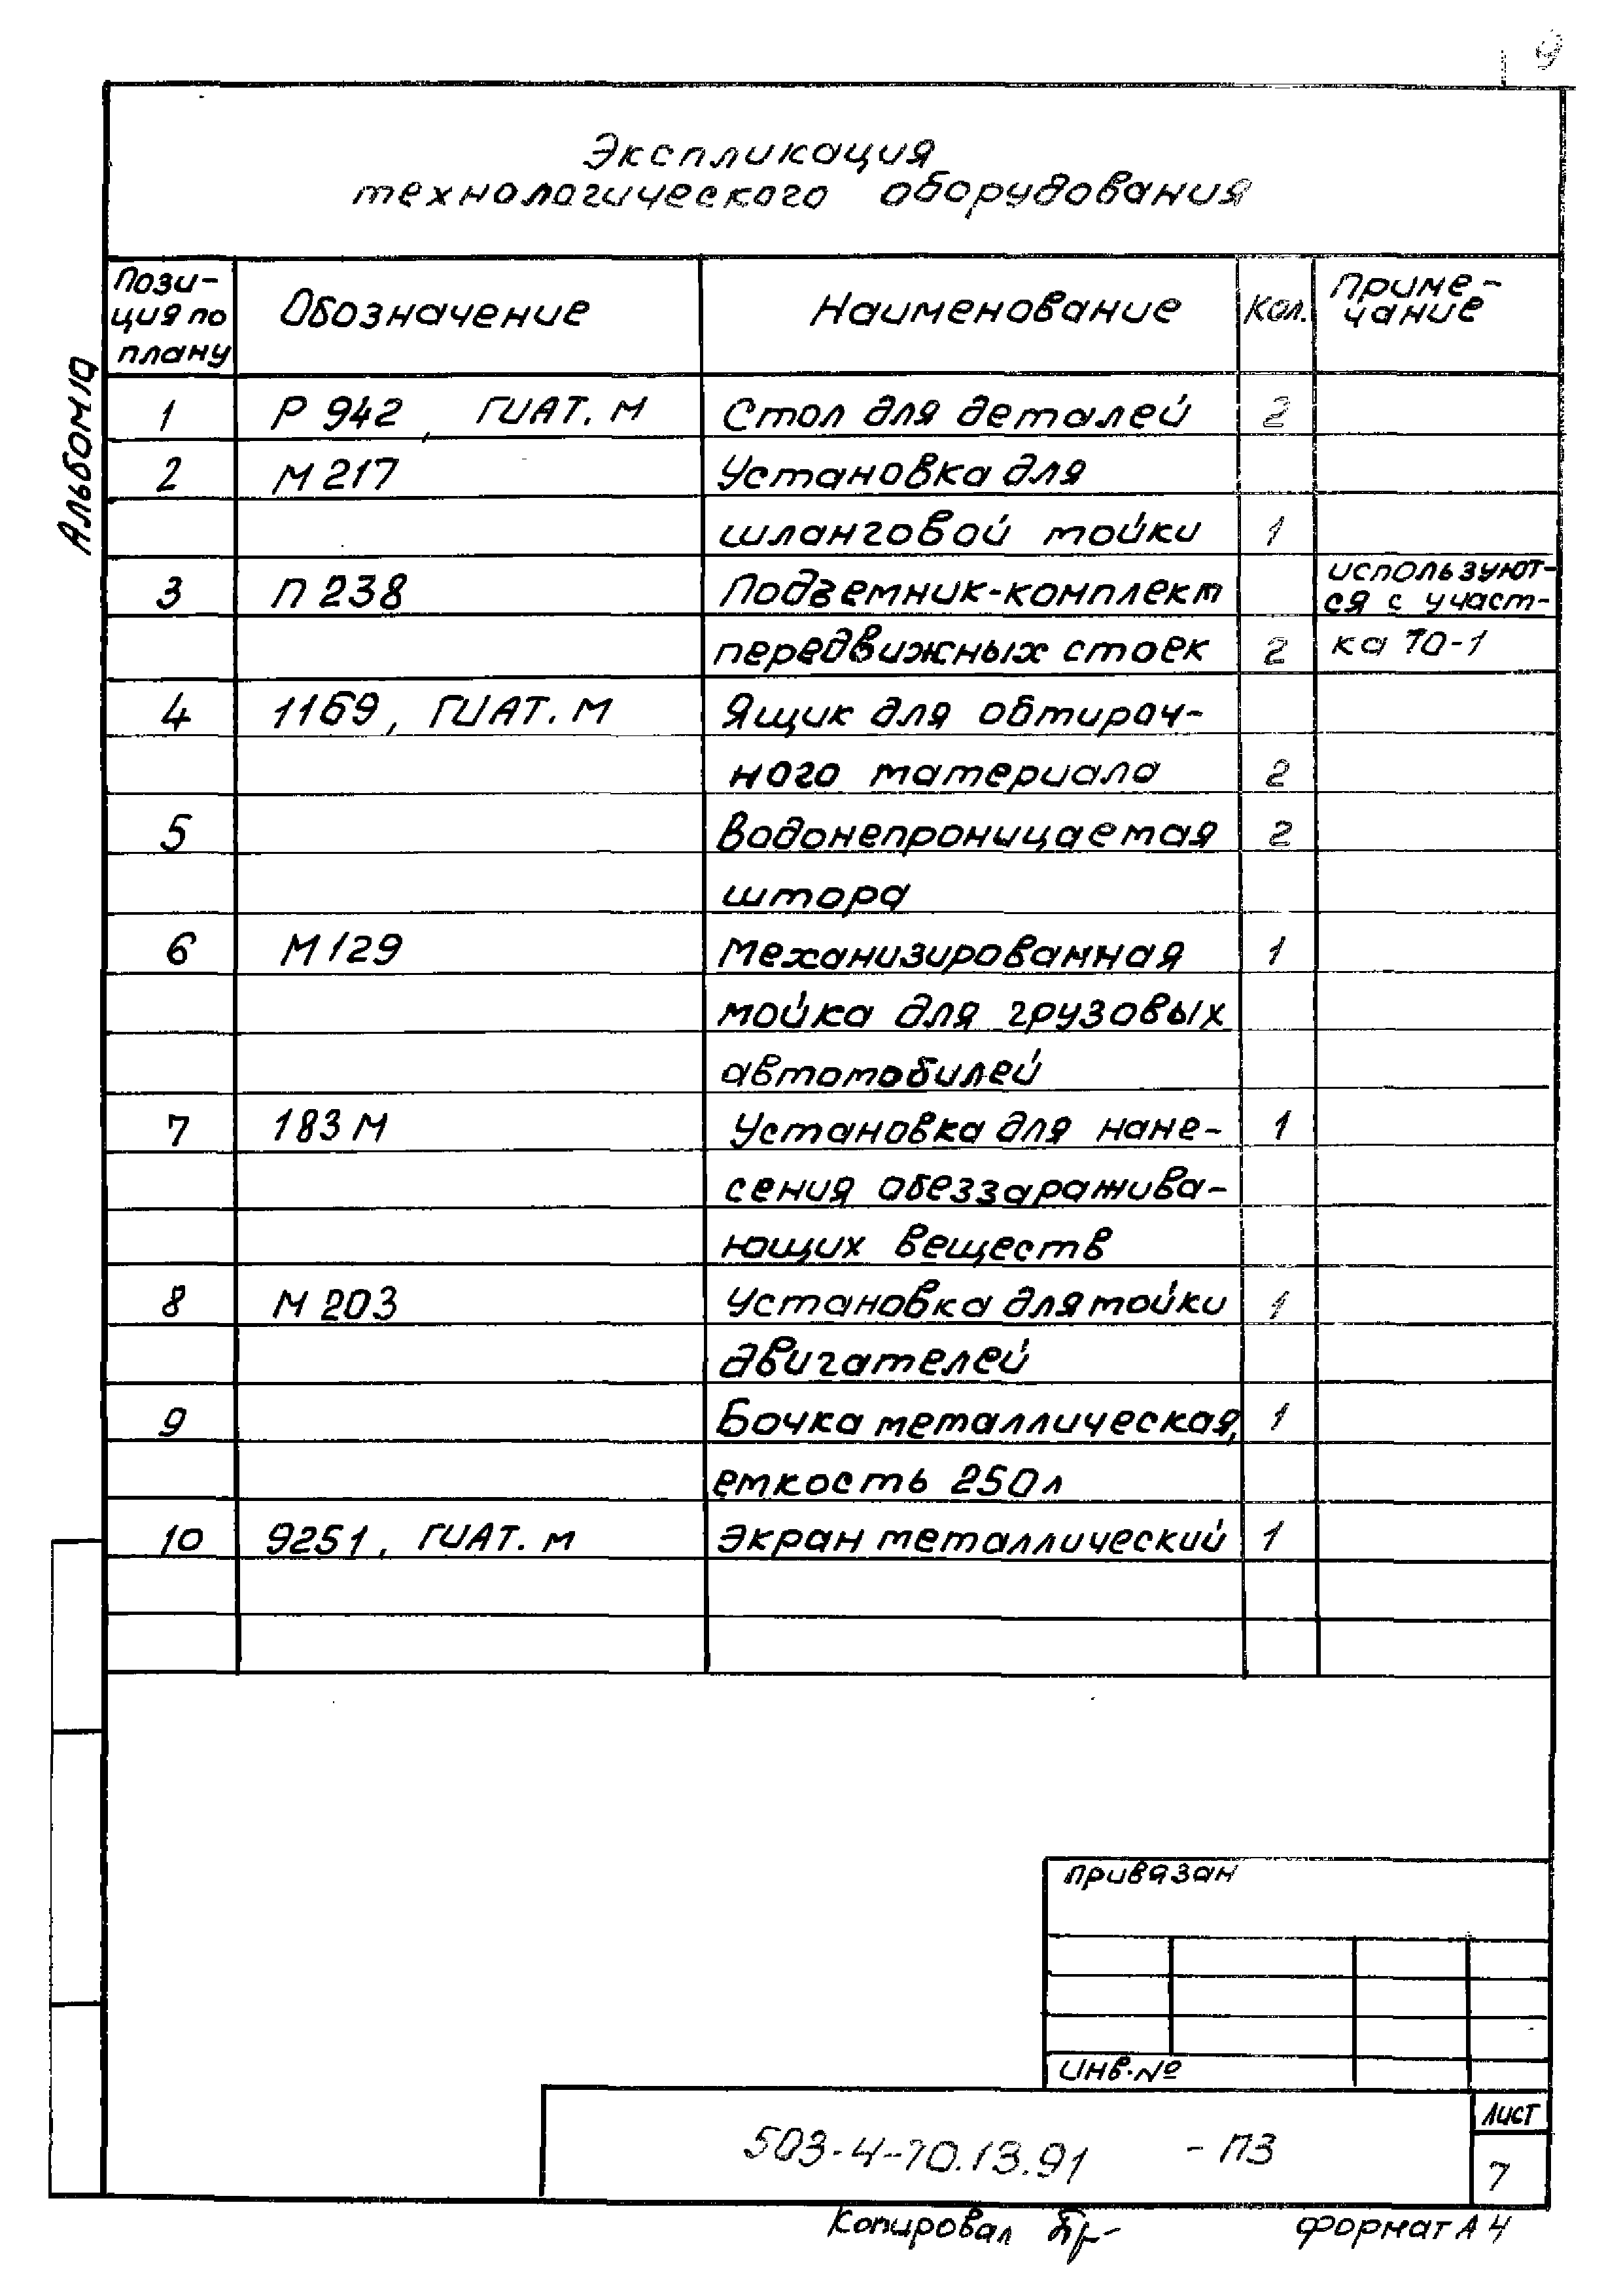 9
Экспликация
технологического оборудования
Пози-
ция по
плану
Обозначение
Наименование
Кол.
Приме-
чание
Альбом 10
1 Р 942, ГИАТ. М Стол для деталей 2
2 М 217 Установка для
шланговой мойки 1
3 П 238 Подъемник-комплект используют-
ся с участ-
передвижных стоек 2 ка ТО-1
4 1169, ГИАТ. М Ящик для обтироч-
ного материала 2
5 Водонепроницаемая 2
штора
6 М 129 Механизированная 1
мойка для грузовых
автомобилей
7 183 М Установка для нане- 1
сения обеззаражива-
ющих веществ
8 М 203 Установка для мойки 1
двигателей
9 Бочка металлическая, 1
емкость 250л
10 9251, ГИАТ. М Экран металлический 1
Привязан
Инв.№
503-4-70.13.91 - ПЗ
Лист
7
Копировал
Формат А4